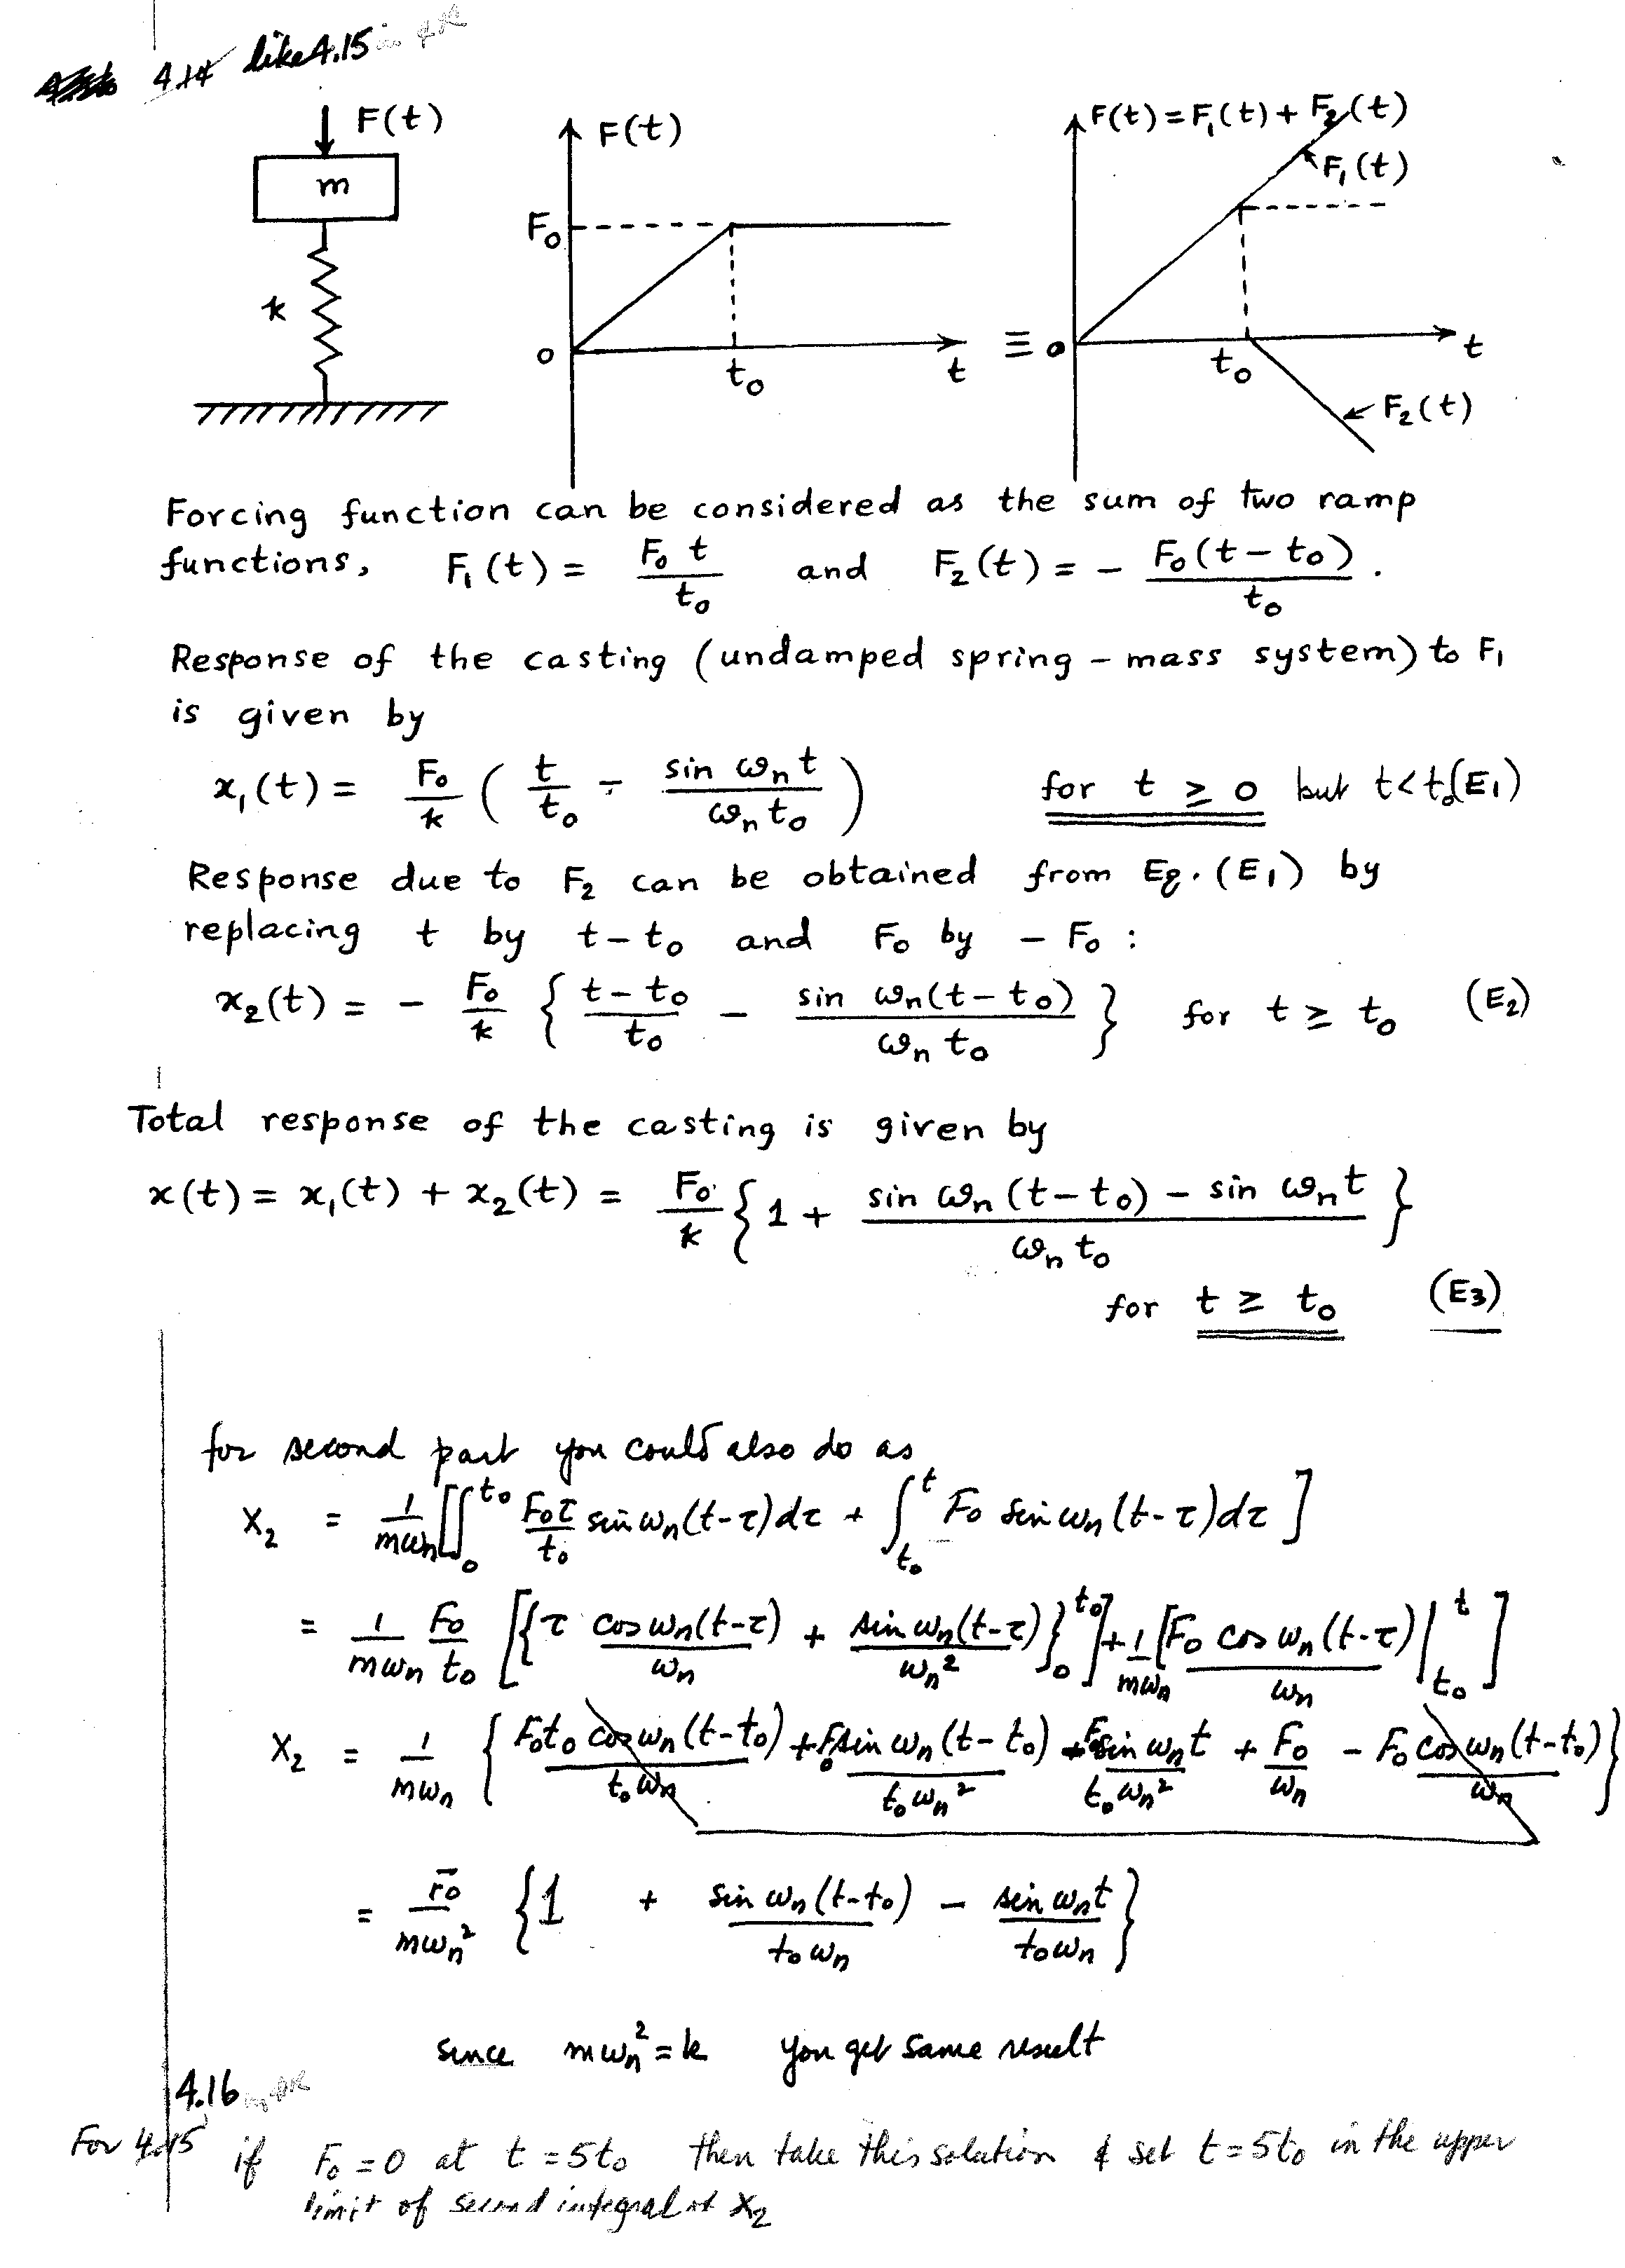 4.14 like 4.15 in
F(t)
m
k
F(t)
F₀
0
t₀
t
≡
F(t) = F₁(t) + F₂(t)
F₁(t)
0
t₀
t
F₂(t)
Forcing function can be considered as the sum of two ramp
functions, F₁(t) = F₀ t / t₀ and F₂(t) = − F₀(t − t₀) / t₀ .
Response of the casting (undamped spring-mass system) to F₁
is given by
x₁(t) = F₀/k ( t/t₀ − sin ωₙt / ωₙt₀ ) for t ≥ 0 but t < t₀ (E₁)
Response due to F₂ can be obtained from Eq. (E₁) by
replacing t by t − t₀ and F₀ by − F₀ :
x₂(t) = − F₀/k { (t − t₀)/t₀ − sin ωₙ(t − t₀) / ωₙt₀ } for t ≥ t₀ (E₂)
Total response of the casting is given by
x(t) = x₁(t) + x₂(t) = F₀/k { 1 + (sin ωₙ(t − t₀) − sin ωₙt) / ωₙt₀ }
for t ≥ t₀ (E₃)
for second part you could also do as
x₂ = 1/mωₙ [ ∫₀^t₀ F₀τ/t₀ sin ωₙ(t−τ)dτ + ∫t₀^t F₀ sin ωₙ(t−τ)dτ ]
= 1/mωₙ F₀/t₀ [ { τ cos ωₙ(t−τ)/ωₙ + sin ωₙ(t−τ)/ωₙ² }₀^t₀ ] + 1/mωₙ [ F₀ cos ωₙ(t−τ)/ωₙ |t₀^t ]
x₂ = 1/mωₙ { F₀t₀ cos ωₙ(t−t₀)/t₀ωₙ + F₀ sin ωₙ(t−t₀)/t₀ωₙ² − F₀ sin ωₙt/t₀ωₙ² + F₀/ωₙ − F₀ cos ωₙ(t−t₀)/ωₙ }
= F₀/mωₙ² { 1 + sin ωₙ(t−t₀)/t₀ωₙ − sin ωₙt/t₀ωₙ }
since mωₙ² = k you get same result
4.16
For 4.15 if F₀ = 0 at t = 5t₀ then take this solution & set t = 5t₀ in the upper
limit of second integral of x₂